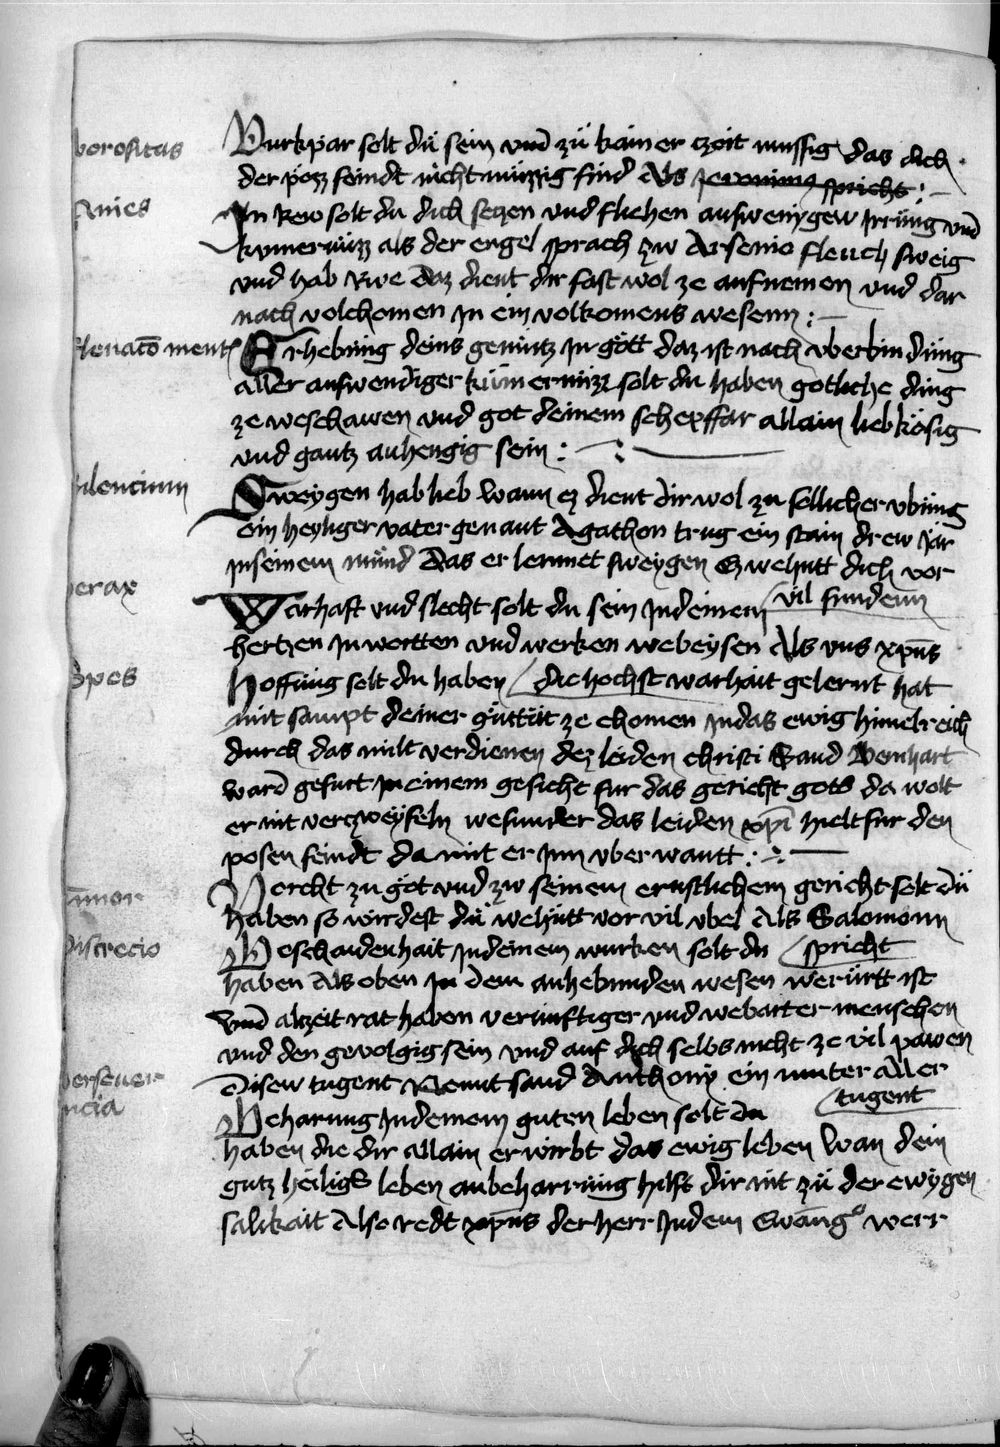 borositas
Wurkpar solt du sein vnd zu kainer czeit mussig das dich
der pözz feindt nicht müzzig find Als Jeronimus spricht :
Qnies
In Rew solt du dich seczen vnd fliehen auswenygew Jrrüng vnd
kumernüzz als der engel sprach zw Arsenio fleuch sweig
vnd hab Rwe daz dient dir fast wol ze aufnemen vnd dar
nach volchomen Jn ein volkomens wesenn :
Eleuacō mentꝭ
Erhebüng deins gemütz Jn gött daz ist nach vberbindüng
aller auswendiger kümernüzz solt du haben gotliche ding
ze weschawen vnd got deinem schepffar allain liebkösig
vnd gantz anhengig sein :
silencium
Sweygen hab lieb wann ez dient dir wol zu sollicher vbüng
ein heyliger vater genant Agathon trug ein stain drew Jar
Jn seinem münd das er lernnet sweygen Ez wehutt dich vor
vil sundenn
verax
Warhaft vnd slecht solt du sein Jn deinem
hertzen Jn wortten vnd werken webeysen Als vns xp̄us
die hochst warhait gelernt hat
Spes
Hoffnüng solt du haben
mit sampt deiner güttät ze chomen Jn das ewig himelreich
durch das milt verdienen dez leiden christi Sand Bernhart
ward gefurt Jn einem gesicht fur das gericht gots da wolt
er nit verczweyfeln wesunder das leiden xp̄i hielt fur den
posen feindt da mit er Jnn vberwantt :
timor
Vorcht zu göt vnd zw seinem ernstlichem gericht solt dü
haben so wirdest dü wehütt vor vil vbel Als Salomonn
spricht
Discrecio
Weschaidenhait Jn deinem wurken solt du
haben Als oben Jn dem anhebunden wesen werürtt ist
Vnd alzeit rat haben vernünftiger vnd webarter menschen
vnd den gevolgig sein vnd auf dich selbs nicht ze vil pawen
Disew tugent Nennt sand Anthony ein muter aller
tugent
perseuer
ancia
Weharung Jn deinem guten leben solt du
haben die dir allain erwirbt das ewig leben wan dein
gutz heiligs leben an beharrüng hilft dir nit zü der ewygen
salikait Also redt xp̄us der herr Jn dem Ewāngo werr